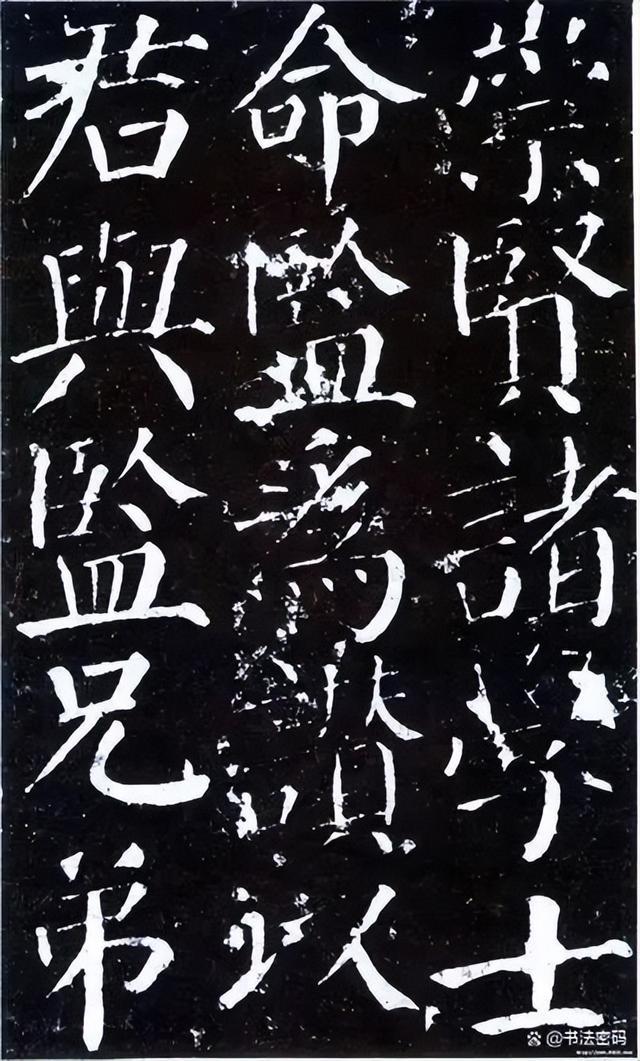 崇賢諸學士
命監為讚以
君與監兄弟
@书法密码